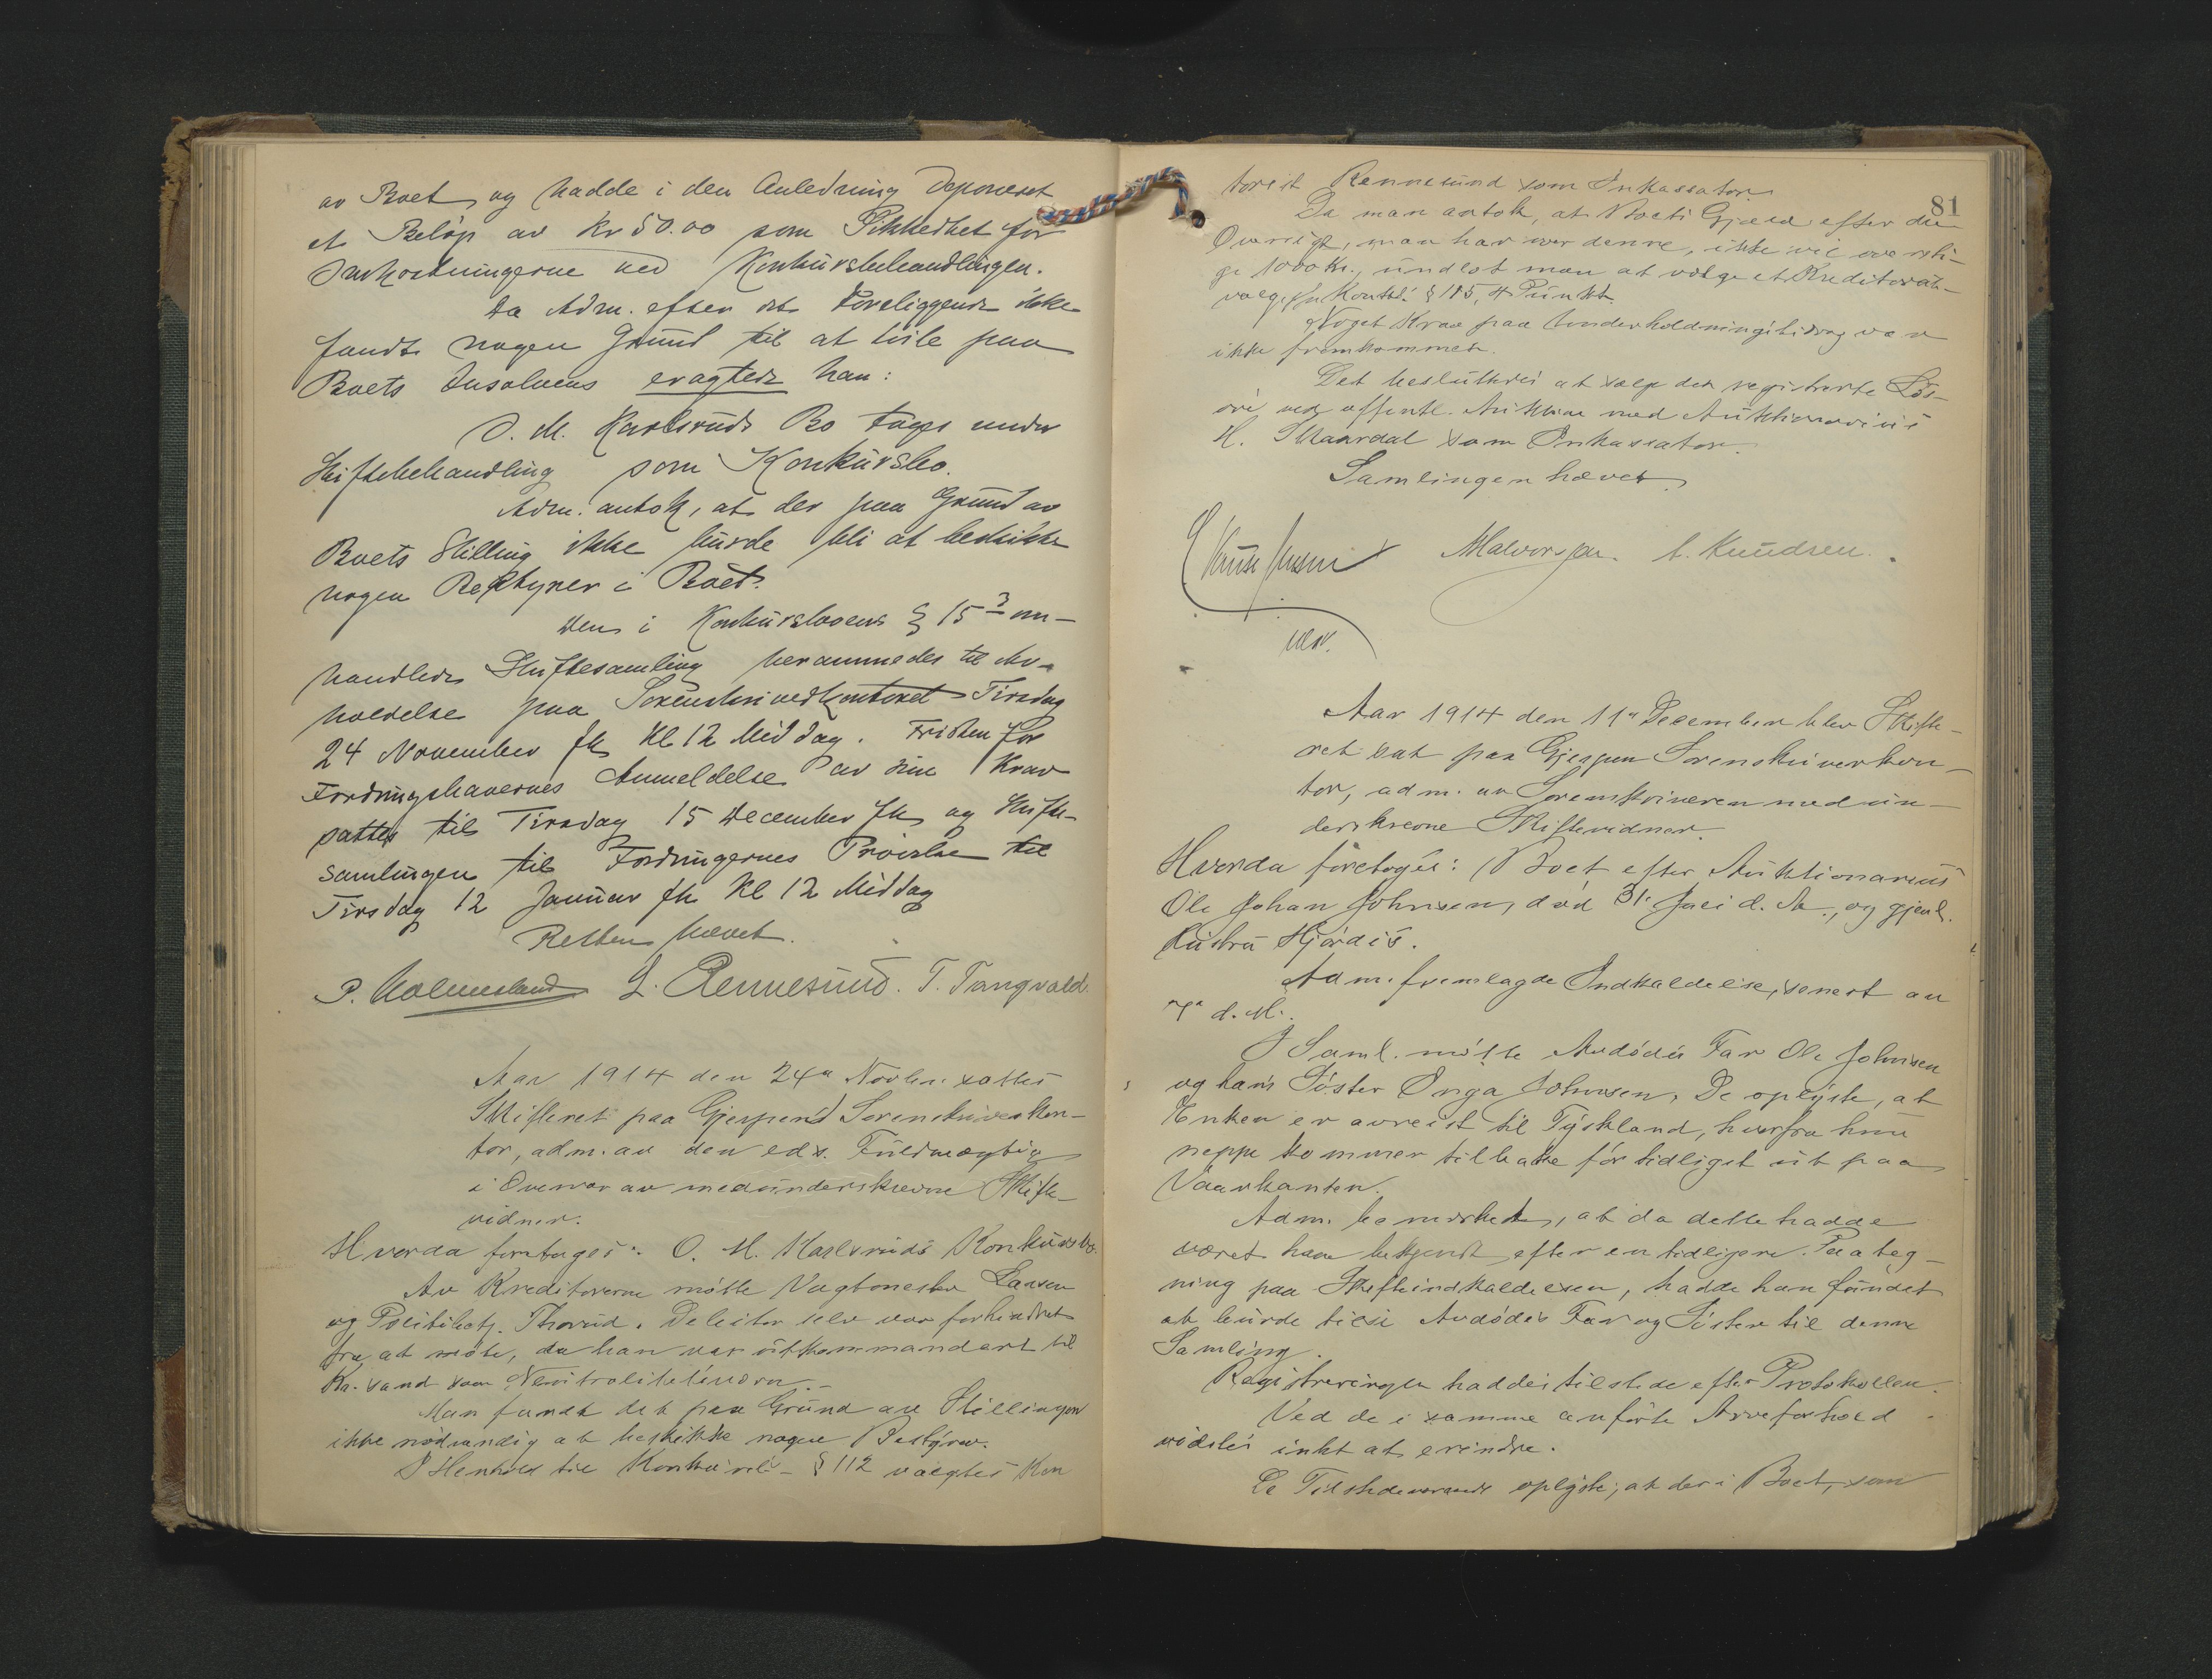 av Boet og hadde i den Anledning deponeret
et Beløp av Kr 50.00 som Sikkerhet for
Omkostningerne ved Konkursbehandlingen.
Da Adm. efter det Foreliggende ikke
fandt nogen Grund til at tvile paa
Boets Insolvens eragtede han:
O. M. Karlsruds Bo tages under
Skiftebehandling som Konkursbo.
Adm. antok, at der paa Grund av
Boets Stilling ikke burde bli at beskikke
nogen Bestyrer i Boet.
Den i Konkurslovens § 15 3 om-
handlede Skiftesamling berammedes til Av-
holdelse paa Sorenskriverkontoret Tirsdag
24 November fk Kl 12 Middag. Fristen for
Fordringshavernes Anmeldelse av sine Krav
sattes til Tirsdag 15 December fk og Skifte-
samlingen til Fordringernes Prøvelse til
Tirsdag 12 Januar fk Kl 12 Middag
Retten hævet.
P. Holmesland L. Rennesund. T. Tangvald.
Aar 1914 den 24de Novbr. sattes
Skifteret paa Gjerpens Sorenskriverkon-
tor, adm. av den eds. Fuldmægtig
i Overvær av medunderskrevne Skifte-
vidner.
Hvorda foretoges: O. M. Karlsruds Konkursbo.
Av Kreditorerne møtte Vagtmester Larsen
og Politibetj. Thorud. Debitor selv var forhindret
fra at møte, da han var utkommandert til
Kr.sand som Nøitralitetsvern.
Man fandt det paa Grund av Stillingen
ikke nødvendig at beskikke nogen Bestyrer.
I Henhold til Konkursl. § 112 valgtes Kon
81
torist Rennesund som Inkassator.
Da man antok, at Boets Gjæld efter den
Oversigt, man har over denne, ikke vil oversti-
ge 1000 Kr., undlot man at vælge et Kreditorut-
valg, jfr Konksl. § 115, 4 Punkt.
Noget Krav paa Underholdningsbidrag var
ikke fremkommet.
Det besluttedes at sælge det registrerte Løs-
øre ved offentl. Auktion med Auktionarius
H. Skaardal som Inkassator.
Samlingen hævet.
Halvorsen. C. Knudsen.
Aar 1914 den 11te December blev Skifte-
ret sat paa Gjerpen Sorenskriverkon-
tor, adm. av Sorenskriveren med un-
derskrevne Skiftevidner.
Hvorda foretoges: Boet efter Auktionarius
Ole Johan Johnsen, død 31. Juli d. A., og gjenl.
Hustru Hjørdis.
Adm. fremlagde Indkaldelse, senest av
7de d. M.
I Saml. møtte Avdødes Far Ole Johnsen
og hans Søster Inga Johnsen. De oplyste, at
Enken er avreist til Tyskland, hvorfra hun
neppe kommer tilbake før tidligst ut paa
Vaarkanten.
Adm. bemerket, at da dette hadde
været ham bekjendt efter en tidligere Paateg-
ning paa Skifteindkaldelsen, hadde han fundet
at burde tilsi Avdødes Far og Søster til denne
Samling.
Registreringen haddes tilstede efter Protokollen.
Ved de i samme anførte Arveforhold
vidstes intet at erindre.
De Tilstedeværende oplyste, at der i Boet, som